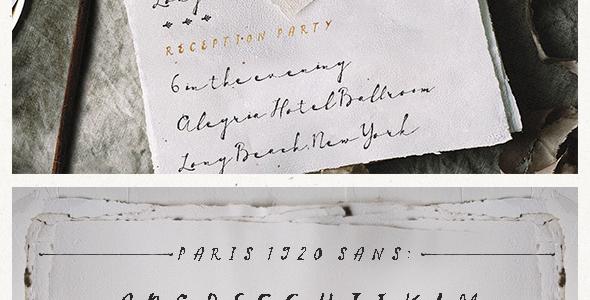 RECEPTION PARTY
6 in the evening
Alegria Hotel Ballroom
Long Beach, New York
PARIS 1920 SANS: